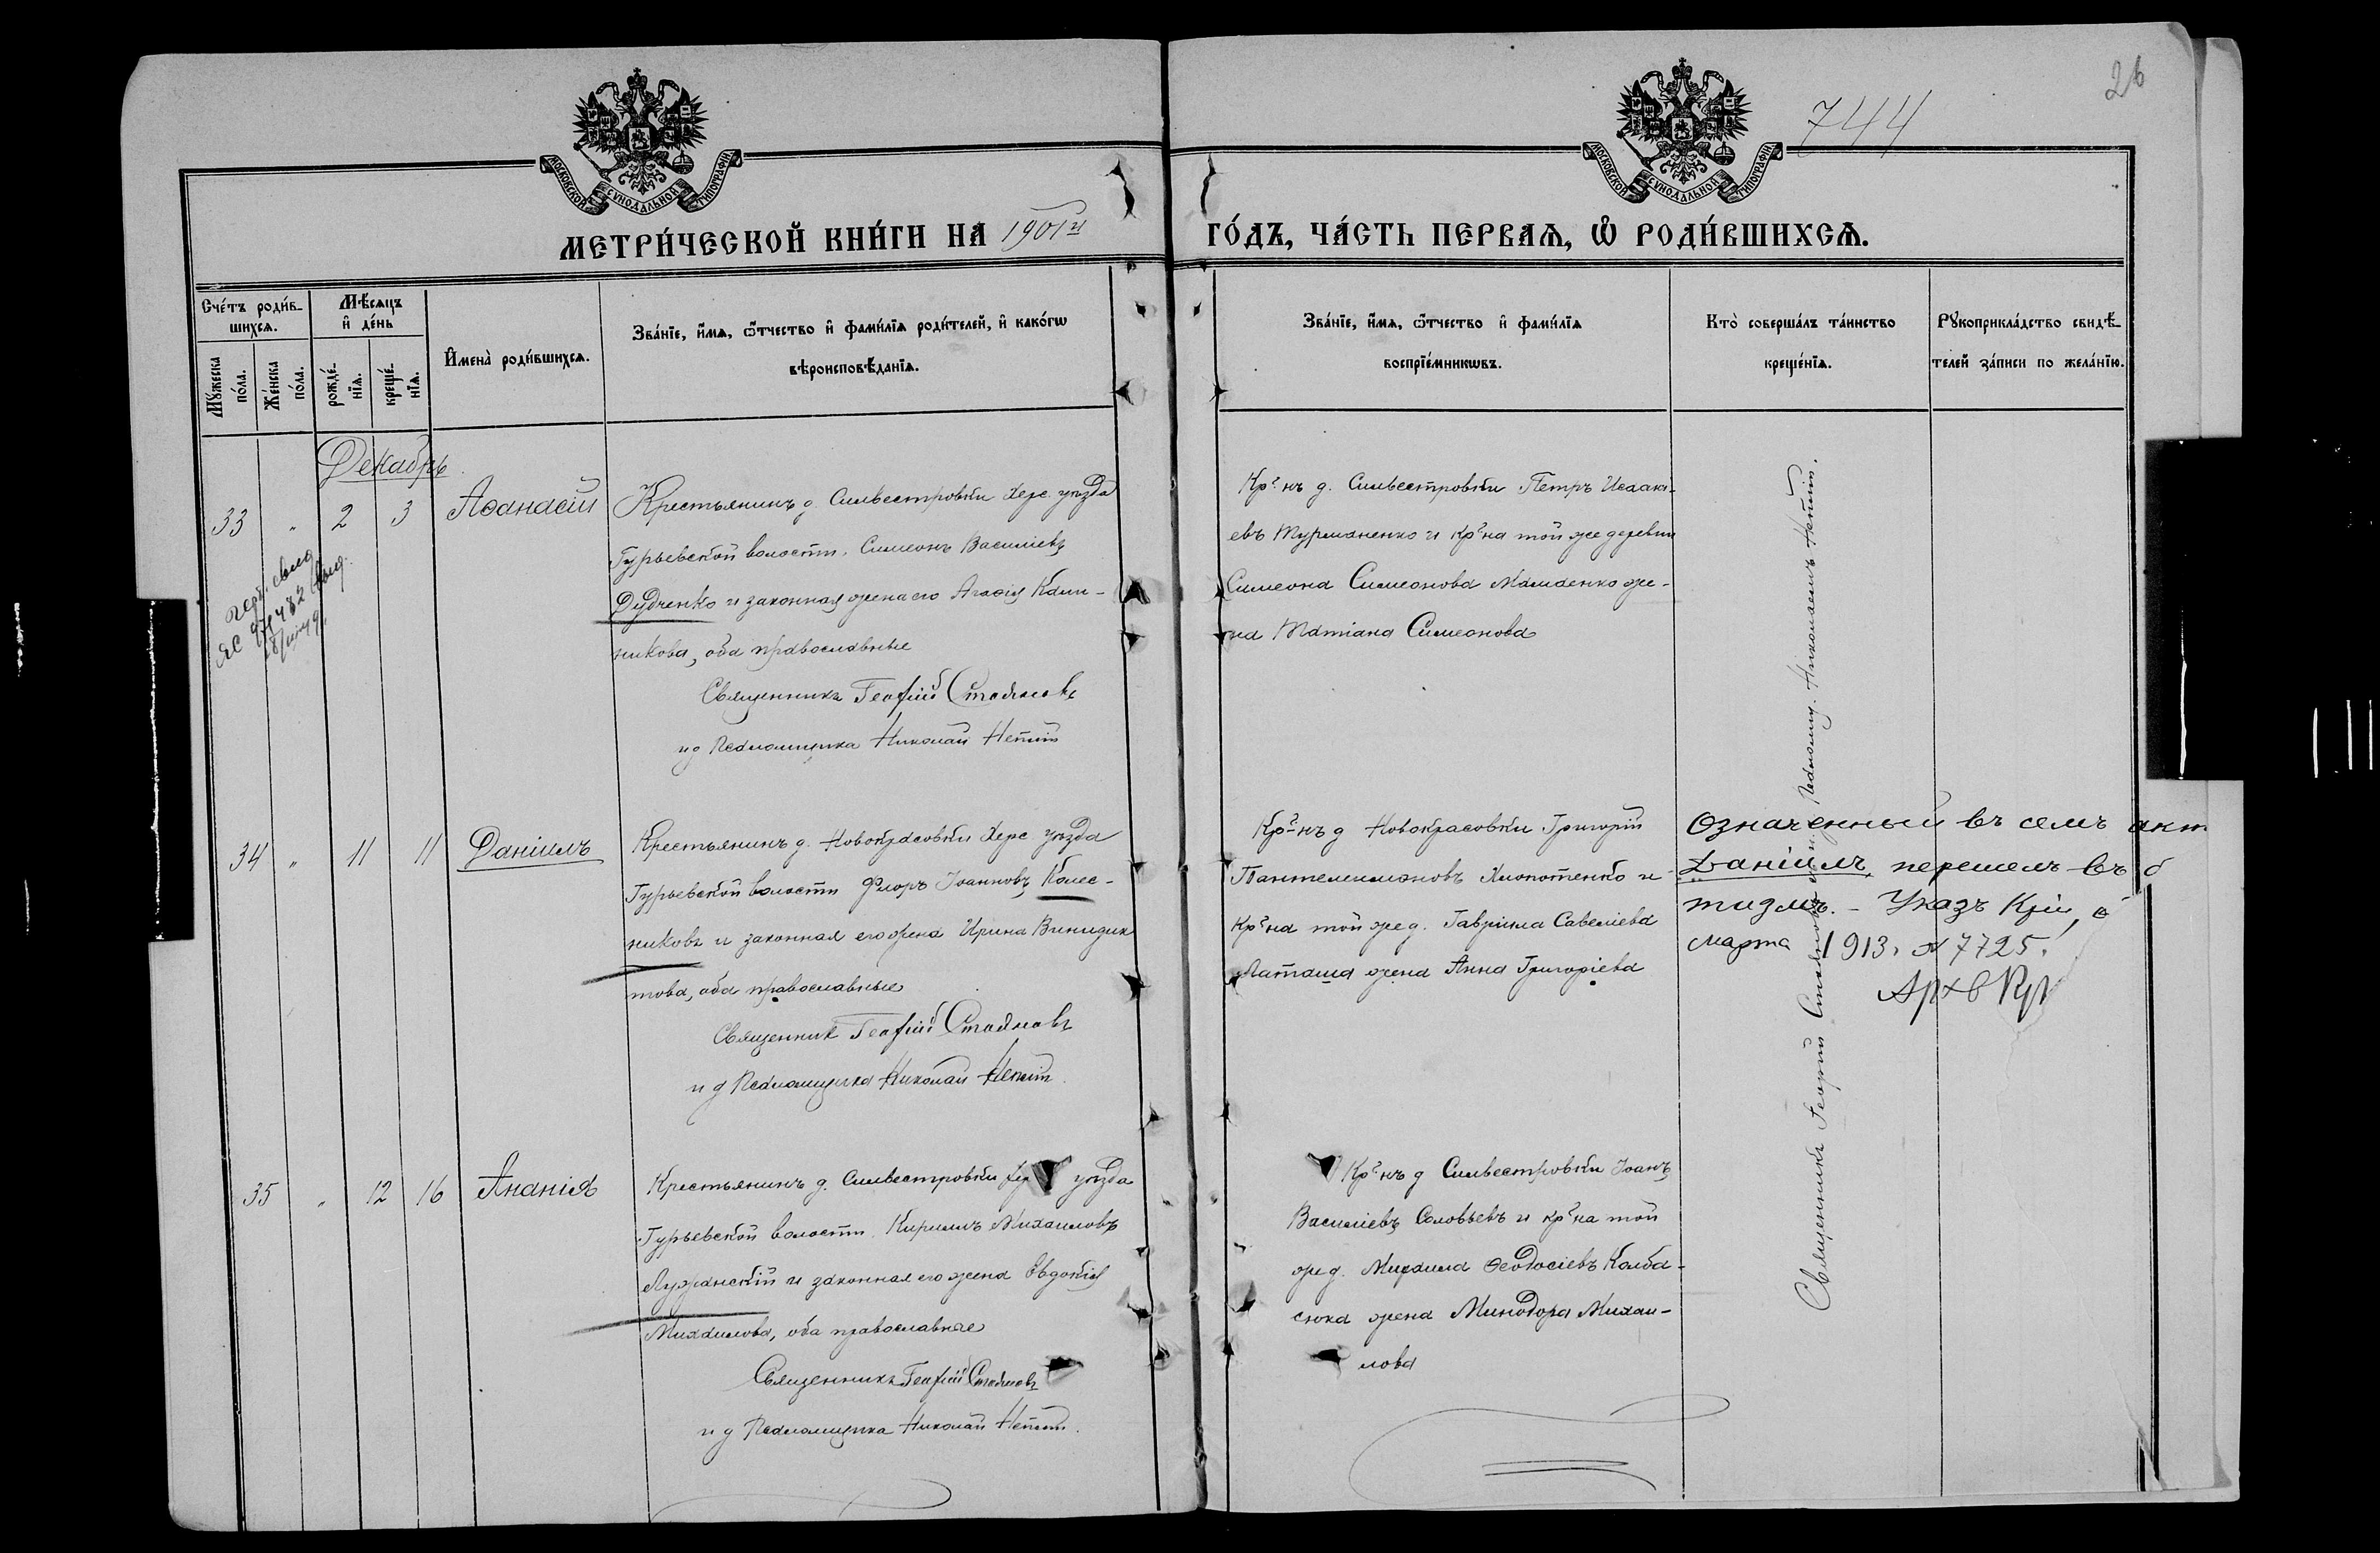 26
744
МОСКОВСКОЙ СѴНОДАЛЬНОЙ ТИПОГРАФІИ
МОСКОВСКОЙ СѴНОДАЛЬНОЙ ТИПОГРАФІИ
МЕТРИ́ЧЕСКОЙ КНИ́ГИ НА 1901й ГО́ДЪ, ЧА́СТЬ ПЕРВАѦ, Ѡ РОДИ́ВШИХСѦ.
Сче́тъ роди́в-
шихсѧ.
Мѣ́сѧцъ
и де́нь
Мꙋ́жеска
по́ла.
Же́нска
по́ла.
рожде́-
нїѧ.
креще́-
нїѧ.
Имена̀ роди́вшихсѧ.
Зва́нїе, и́мѧ, ѻ́тчество и фами́лїѧ роди́телей, и како́гѡ
вѣроисповѣ́данїѧ.
Зва́нїе, и́мѧ, ѻ́тчество и фами́лїѧ
воспрїе́мникѡвъ.
Кто̀ соверша́лъ та́инство
креще́нїѧ.
Рꙋкоприкла́дство свидѣ́-
телей за́писи по жела́нїю.
Декабрь
33 " 2 3 Аѳанасій
Крестьянинъ д. Сильвестровки Херс. уѣзда
Гурьевской волости, Симеонъ Василіевъ
Дудченко и законная жена его Агафія Калин-
никова, оба православные
Священникъ Георгій Стояновъ
и д Псаломщика Николай
Кр-нъ д. Сильвестровки Петръ Исааки-
евъ Турманенко и кр-на той же деревни
Симеона Симеонова Мамаенко же-
на Татіана Симеонова
34 " 11 11 Даніилъ
Крестьянинъ д. Новокрасовки Херс уѣзда
Гурьевской волости Флоръ Іоанновъ Колес-
никовъ и законная его жена Ирина Винидик
това, оба православные
Священникъ Георгій Стояновъ
и д Псаломщика Николай
Кр-нъ д Новокрасовки Григорій
Пантелеимоновъ Хлопотенко и
кр-на той же д. Гавріила Савеліева
Латаша жена Анна Григоріева
Означенный въ семъ акт
Даніилъ перешелъ въ б
тизмъ. – Указъ
марта 1913. № 7725.
35 " 12 16 Ананія
Крестьянинъ д. Сильвестровки уѣзда
Гурьевской волости. Кириллъ Михаиловъ
Лужанскій и законная его жена Евдокія
Михаилова, оба православные
Священникъ Георгій Стояновъ
и д Псаломщика Николай
Кр-нъ д Сильвестровки Іоанъ
Василіевъ Соловьевъ и кр-на той
же д. Михаила Ѳеодосіевъ Колба-
сюка жена Минодора Михаи-
лова
Священникъ Георгій Стояновъ и д. Псаломщ. Николай